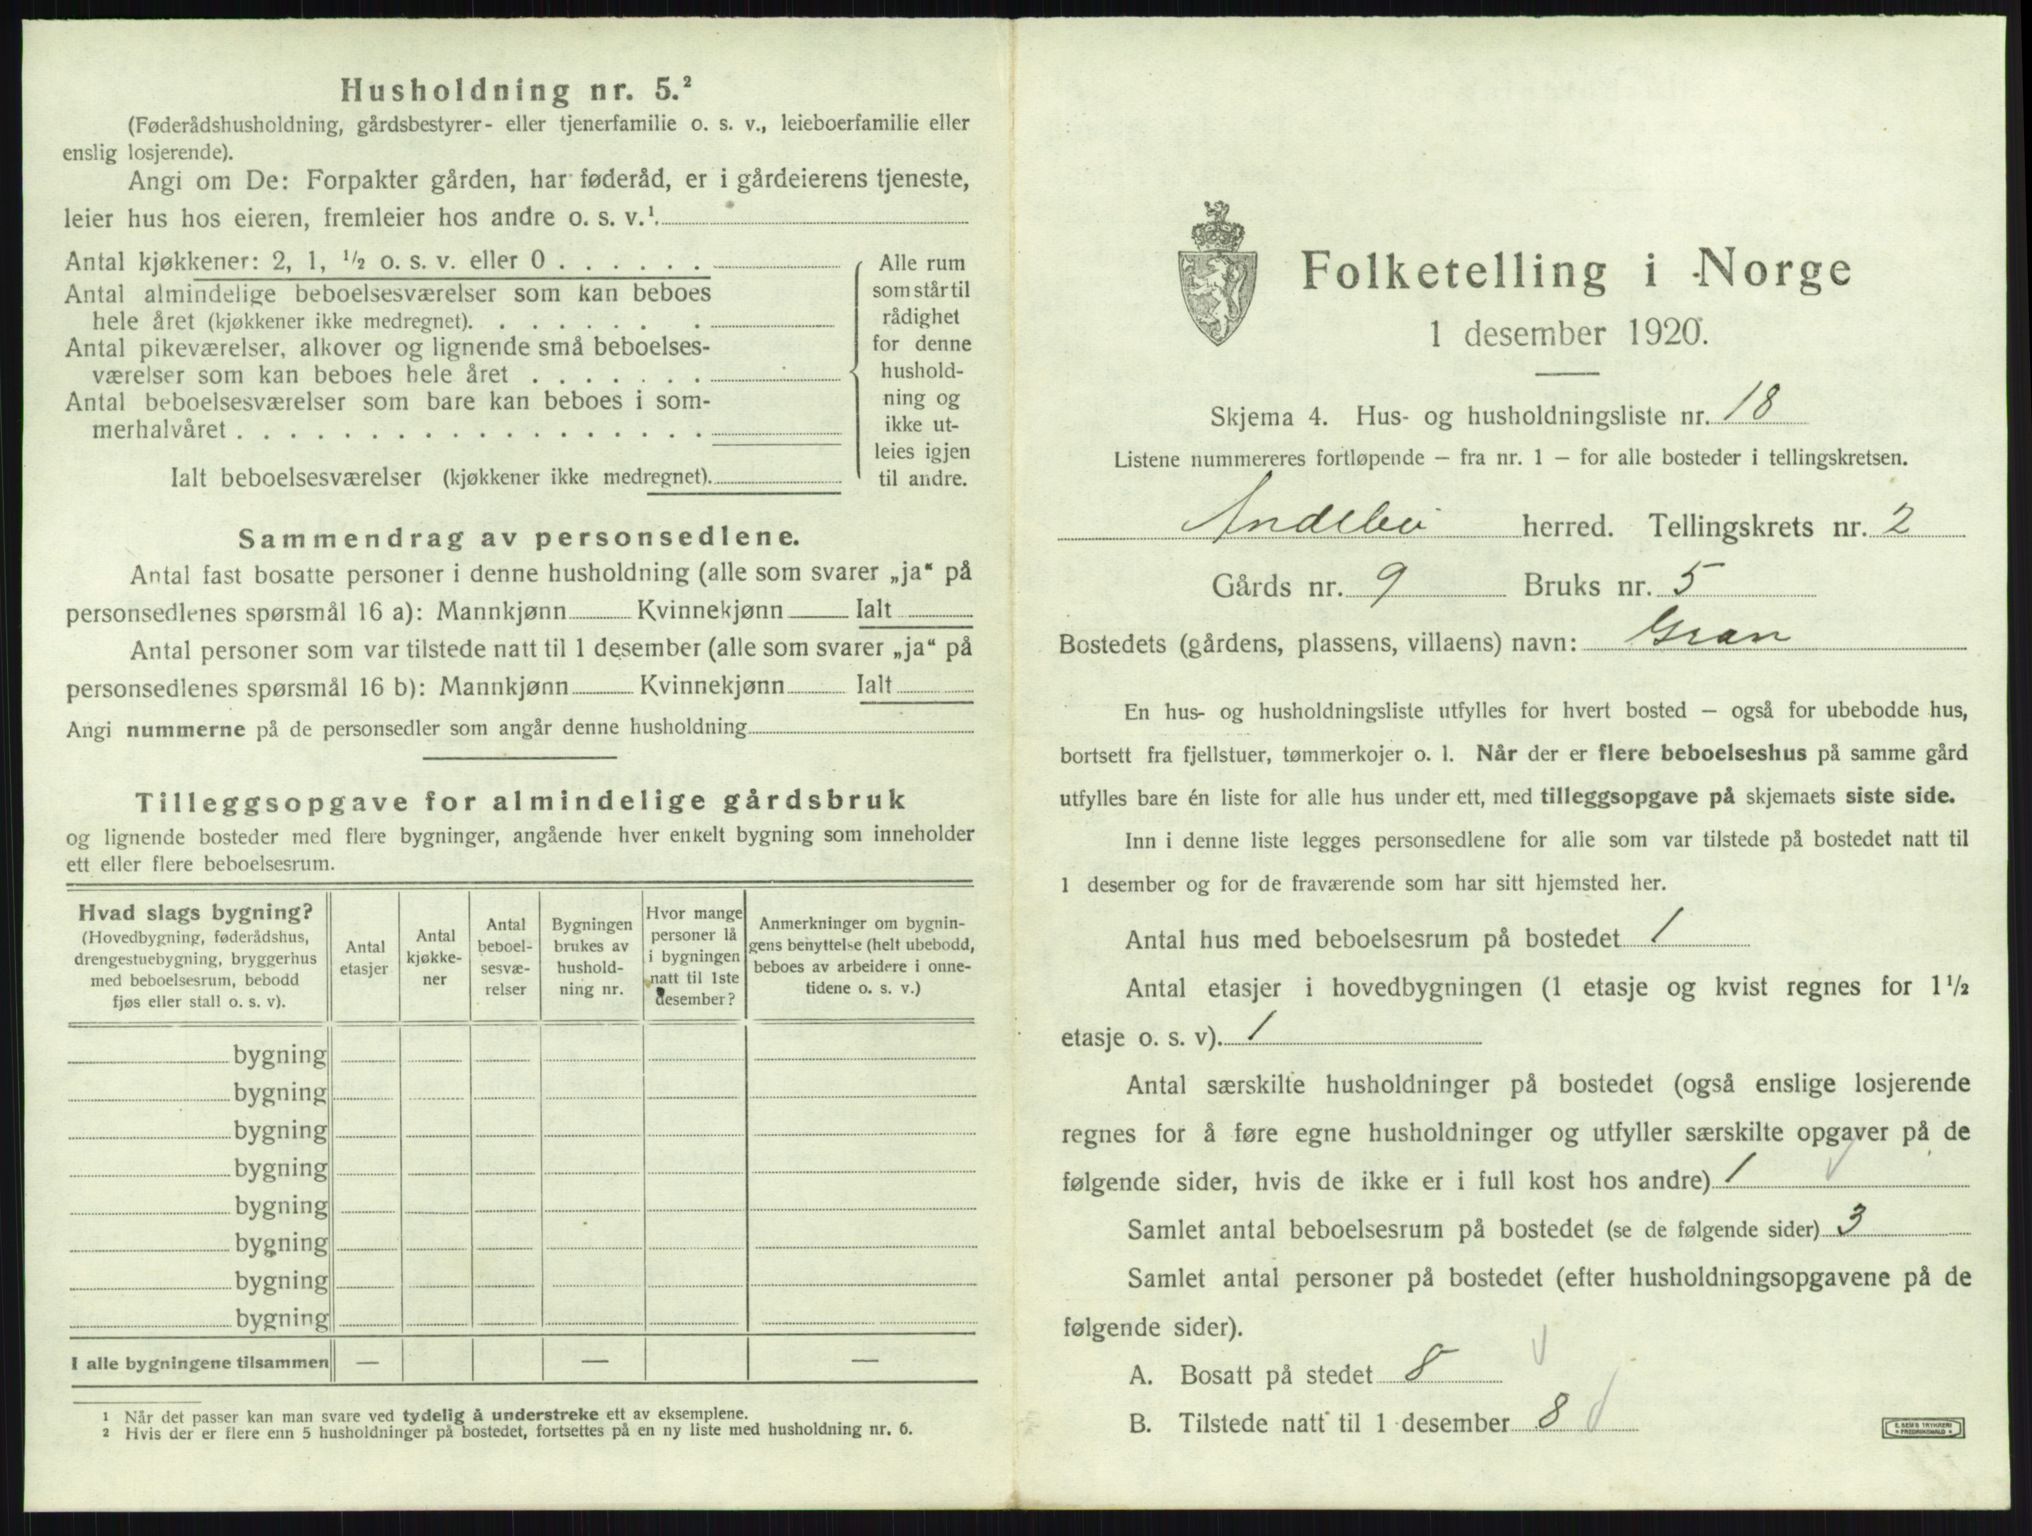 Husholdning nr. 5.²
(Føderådshusholdning, gårdsbestyrer- eller tjenerfamilie o. s. v., leieboerfamilie eller
enslig losjerende).
Angi om De: Forpakter gården, har føderåd, er i gårdeierens tjeneste,
leier hus hos eieren, fremleier hos andre o. s. v.¹.
Antal kjøkkener: 2, 1, ½ o. s. v. eller 0 . . . . . .
Antal almindelige beboelsesværelser som kan beboes
hele året (kjøkkener ikke medregnet). . . . . . . .
Antal pikeværelser, alkover og lignende små beboelses-
værelser som kan beboes hele året . . . . . . .
Antal beboelsesværelser som bare kan beboes i som-
merhalvåret . . . . . . . . . . . . . . . . . .
Ialt beboelsesværelser (kjøkkener ikke medregnet).
Alle rum
som står til
rådighet
for denne
hushold-
ning og
ikke ut-
leies igjen
til andre.
Sammendrag av personsedlene.
Antal fast bosatte personer i denne husholdning (alle som svarer „ja“ på
personsedlenes spørsmål 16 a): Mannkjønn Kvinnekjønn Ialt
Antal personer som var tilstede natt til 1 desember (alle som svarer „ja“ på
personsedlenes spørsmål 16 b): Mannkjønn Kvinnekjønn Ialt
Angi nummerne på de personsedler som angår denne husholdning
Tilleggsopgave for almindelige gårdsbruk
og lignende bosteder med flere bygninger, angående hver enkelt bygning som inneholder
ett eller flere beboelsesrum.
Hvad slags bygning?
(Hovedbygning, føderådshus,
drengestuebygning, bryggerhus
med beboelsesrum, bebodd
fjøs eller stall o. s. v).
Antal
etasjer
Antal
kjøkke-
ner
Antal
beboel-
sesvæ-
relser
Bygningen
brukes av
hushold-
ning nr.
Hvor mange
personer lå
i bygningen
natt til 1ste
desember?
Anmerkninger om bygnin-
gens benyttelse (helt ubebodd,
beboes av arbeidere i onne-
tidene o. s. v.)
bygning
bygning
bygning
bygning
bygning
bygning
bygning
bygning
I alle bygningene tilsammen — — —
¹ Når det passer kan man svare ved tydelig å understreke ett av eksemplene.
² Hvis der er flere enn 5 husholdninger på bostedet, fortsettes på en ny liste med husholdning nr. 6.
Folketelling i Norge
1 desember 1920.
Skjema 4. Hus- og husholdningsliste nr. 18
Listene nummereres fortløpende – fra nr. 1 – for alle bosteder i tellingskretsen.
Andebu herred. Tellingskrets nr. 2
Gårds nr. 9 Bruks nr. 5
Bostedets (gårdens, plassens, villaens) navn: Gran
En hus- og husholdningsliste utfylles for hvert bosted – også for ubebodde hus,
bortsett fra fjellstuer, tømmerkojer o. l. Når der er flere beboelseshus på samme gård
utfylles bare én liste for alle hus under ett, med tilleggsopgave på skjemaets siste side.
Inn i denne liste legges personsedlene for alle som var tilstede på bostedet natt til
1 desember og for de fraværende som har sitt hjemsted her.
Antal hus med beboelsesrum på bostedet 1
Antal etasjer i hovedbygningen (1 etasje og kvist regnes for 1½
etasje o. s. v). 1
Antal særskilte husholdninger på bostedet (også enslige losjerende
regnes for å føre egne husholdninger og utfyller særskilte opgaver på de
følgende sider, hvis de ikke er i full kost hos andre) 1
Samlet antal beboelsesrum på bostedet (se de følgende sider) 3
Samlet antal personer på bostedet (efter husholdningsopgavene på de
følgende sider).
A. Bosatt på stedet 8
B. Tilstede natt til 1 desember 8
E. SEMS TRYKKERI
FREDRIKSHALD